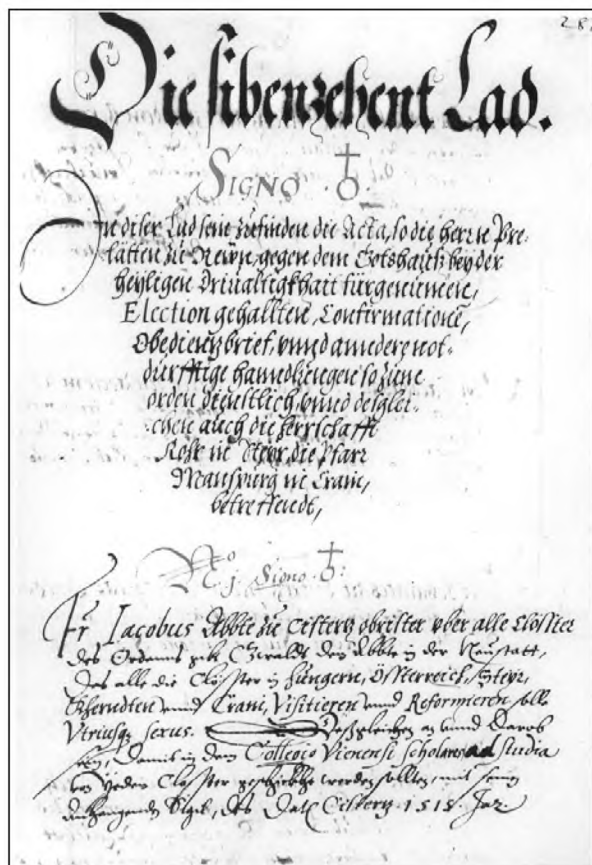 28
Die sibenzehent Lad.
SIGNO ♁.
In diser Lad sein zufinden die Acta, so die herrn Pre-
latten zu Rewn, gegen dem Gotshauß bey der
heyligen Driualtigkhait fürgenumen,
Election gehallten, Confirmationē,
Obedienzbrief, vnnd anndere not-
dürfftige hanndlungen so zum
orden dienstlich, vnnd desglei-
chen auch die herrschafft
in Steyr, die Pfarr
in Crain,
betreffendt,
N.º 1. Signo ♁.
Fr. Iacobus Abbte zu Cisterz obrister vber alle Clöster
des Ordenns gibt Gwaldt dem Abbte in der Neustatt,
das alle die Clöster in Hungern, Össterreich, Steyr,
Khernndten vnnd Crain, Visitieren vnnd Reformieren solle
Vtriusqȝ sexus. Desgleichen an vnnd darob
sein, damit in dem Collegio Vienensi scholares ad studia
von yeden Closster geschickht werden sollten, mit seinem
anhangenden Sigil, des Dat. Cisterz 1515 Jar